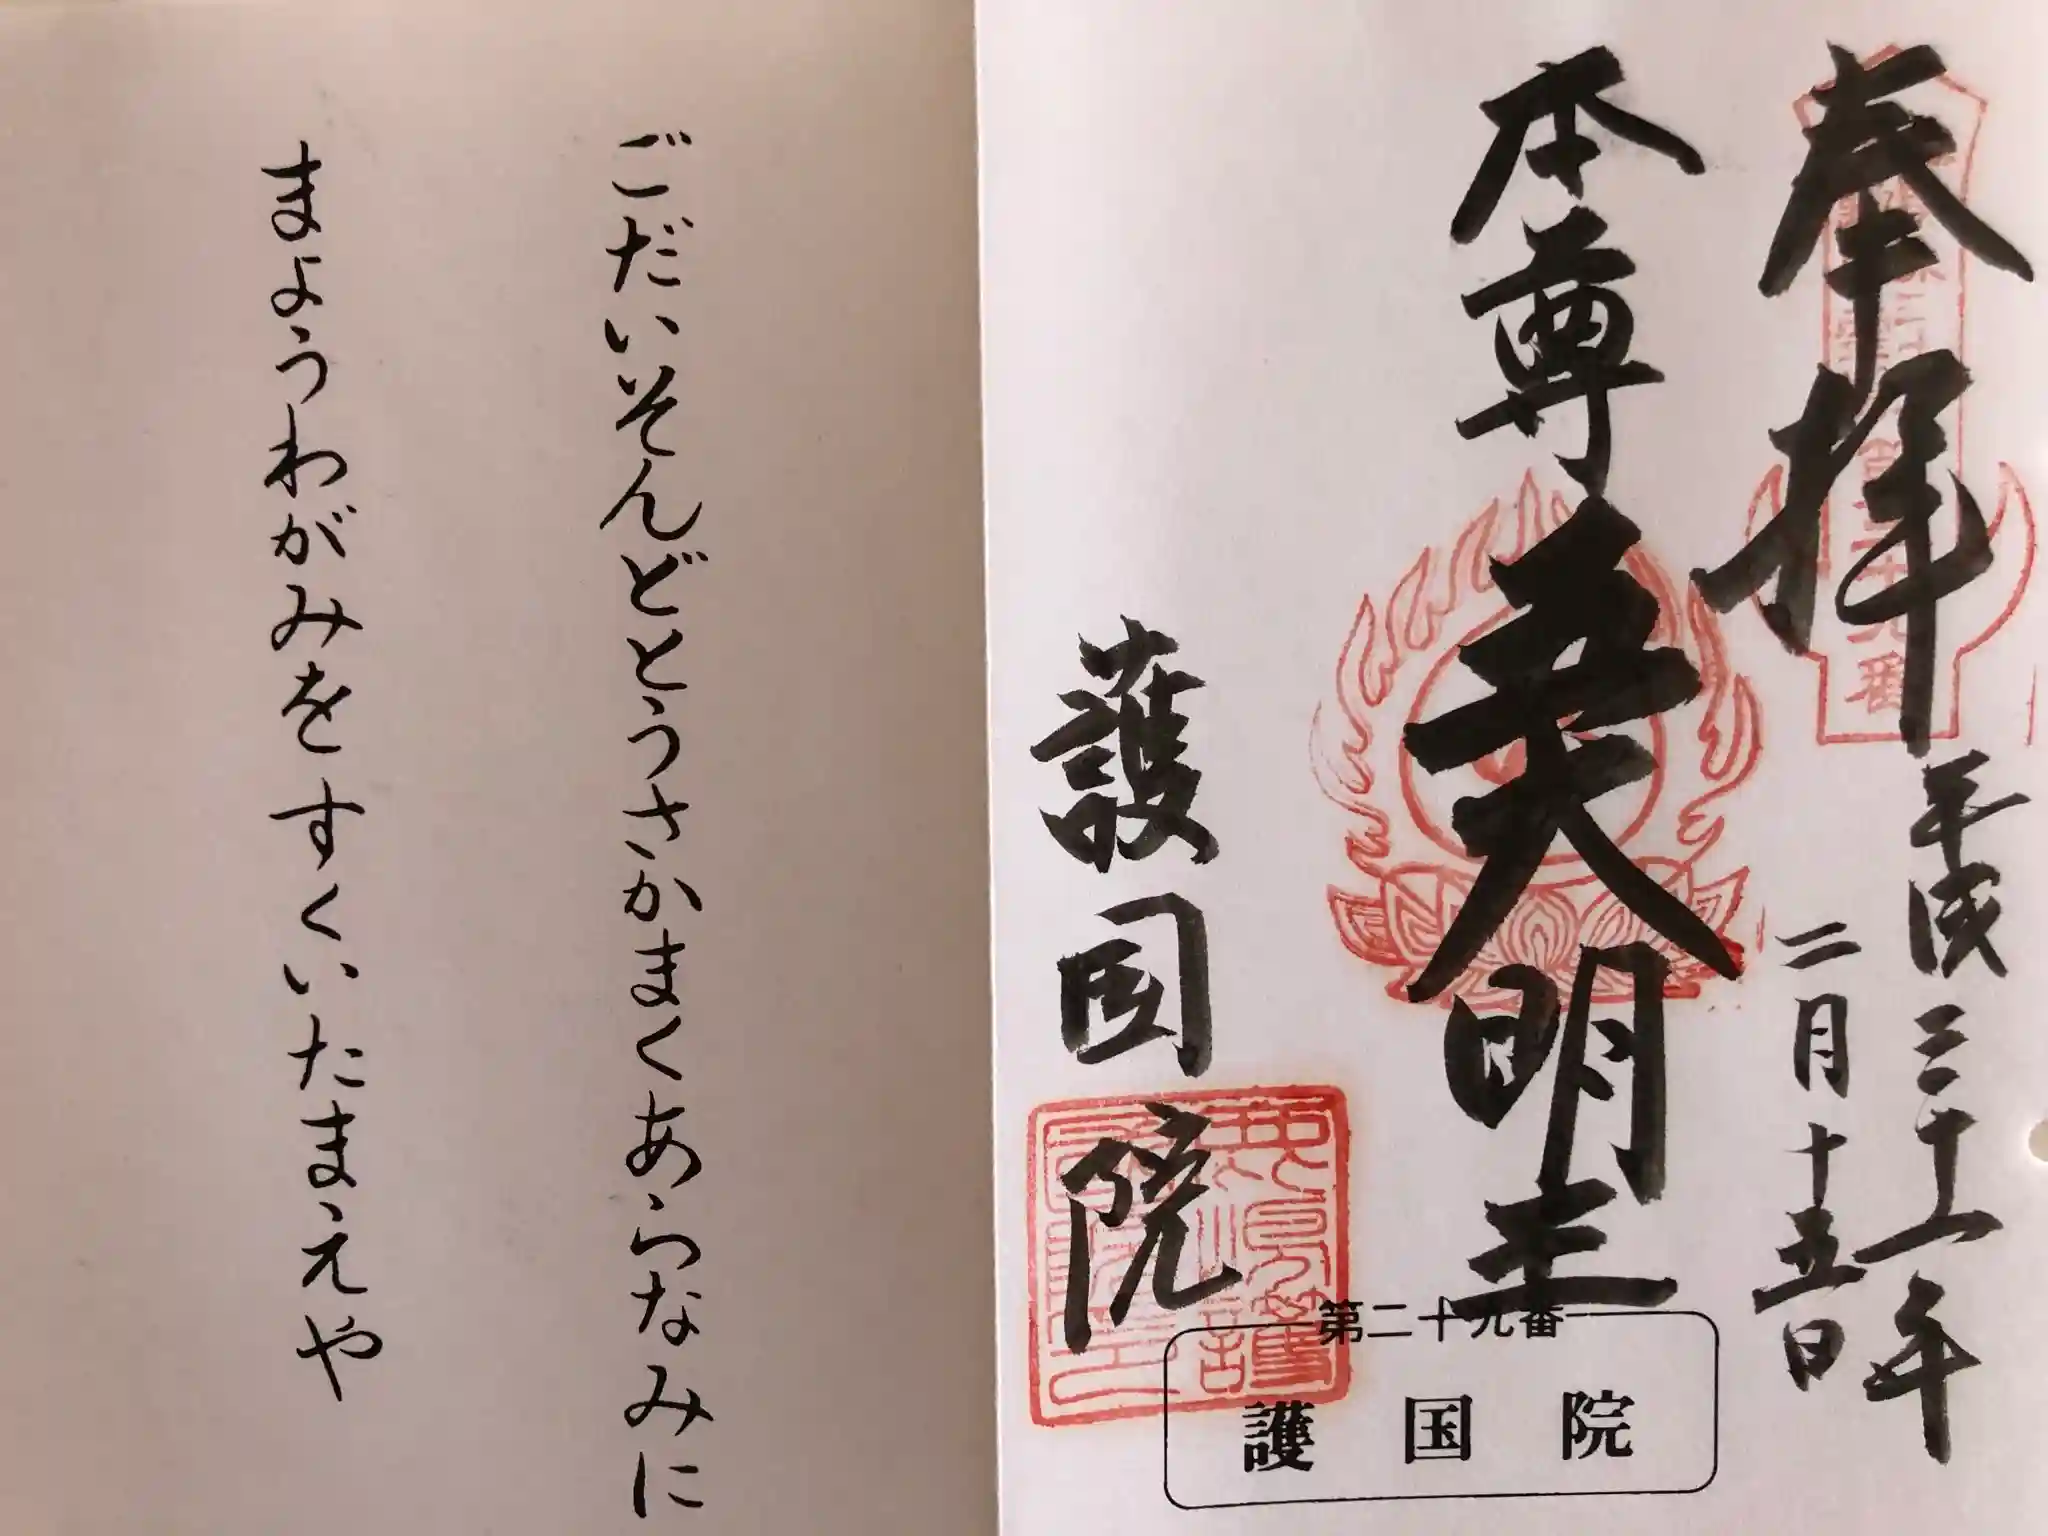 奉拝
平成三十一年
二月十五日
本尊五大明王
護国院
第二十九番
護国院
ごだいそんどとうさかまくあらなみに
まようわがみをすくいたまえや